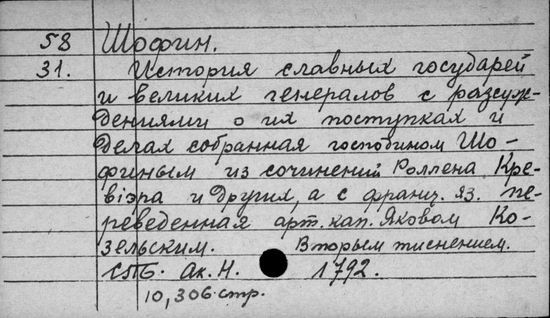 58 Шофин.
31. История славных государей
и великих генералов с разсуж-
дениями о их поступках и
делах собранная господином Шо-
финым из сочинений Роллена, Кре-
віэра и других, а с франц. яз. пе-
реведенная арт. кап. Яковом Ко-
зельским. Вторым тиснением.
СПБ. Ак. Н. 1792.
10, 306 стр.